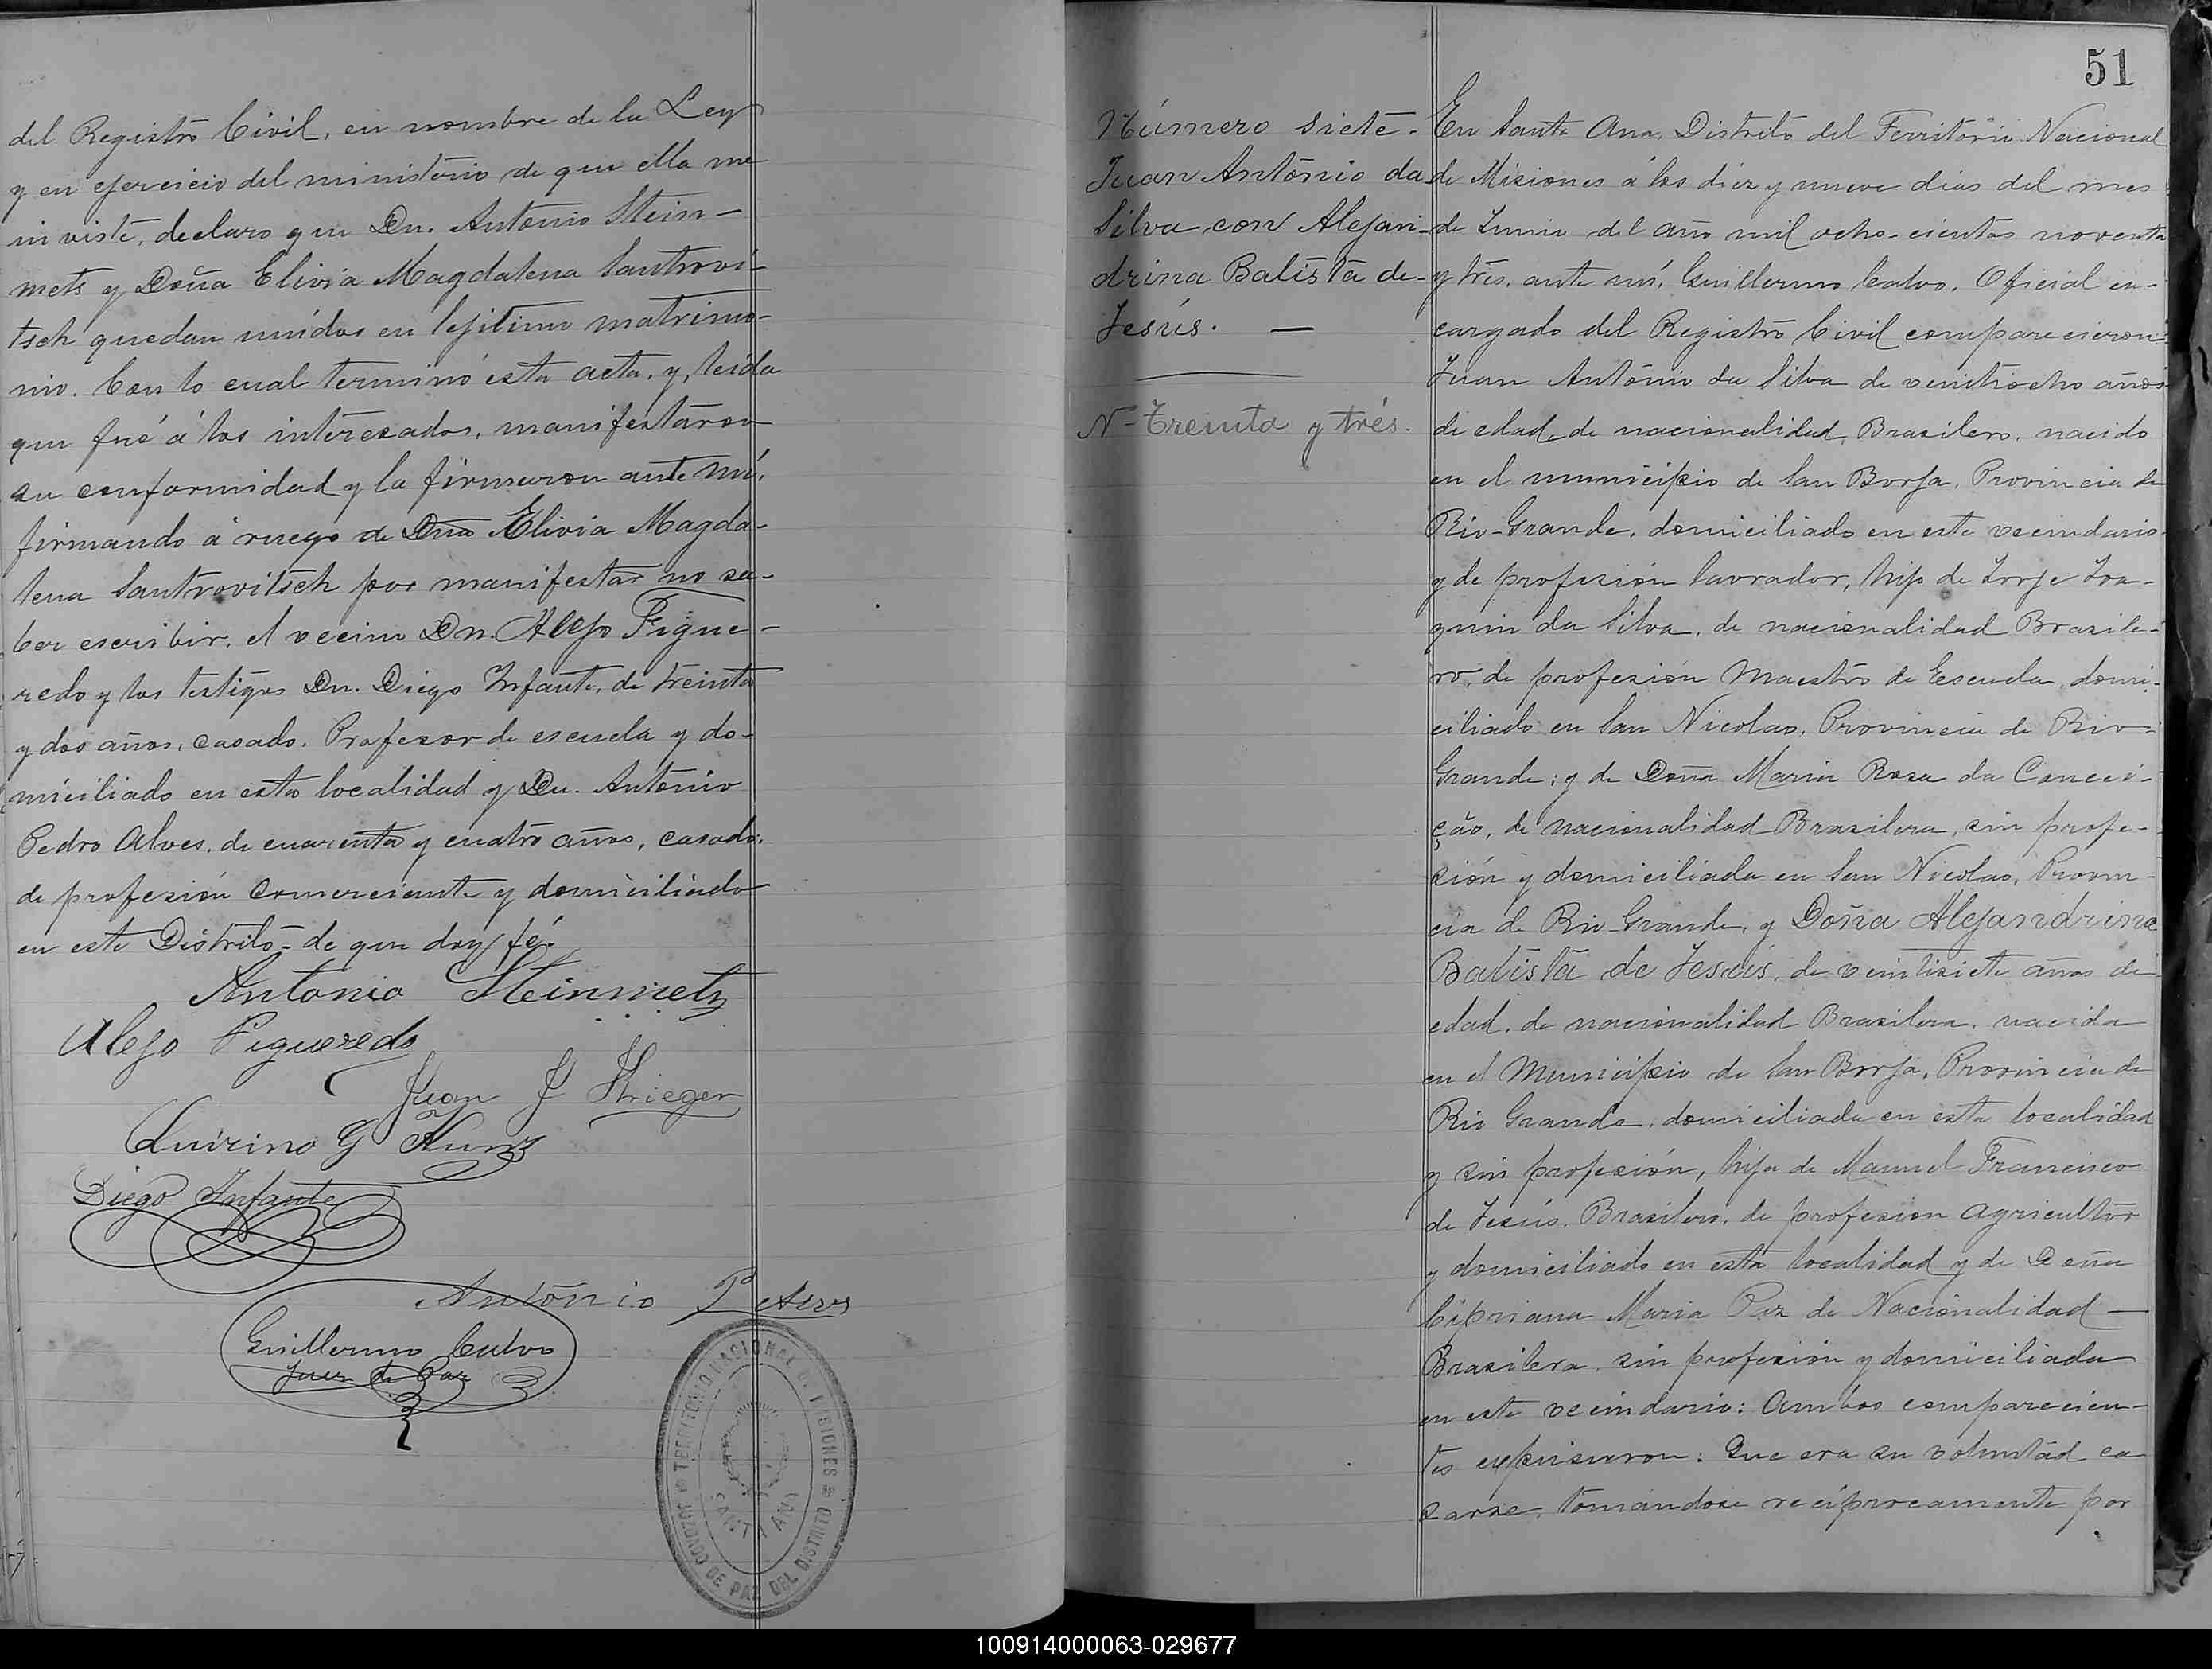 del Registro Civil, en nombre de la Ley
y en ejercicio del ministerio de que ella me
inviste, declaro que Dn. Antonio Stein-
mets y Doña Elivia Magdalena Santrovi-
tsch quedan unidos en lejitimo matrimo-
nio. Con lo cual terminó esta acta, y, leida
que fué á los interesados, manifestaron
su conformidad y la firmaron ante mi,
firmando á ruego de Dña Elivia Magda-
lena Santrovitsch por manifestar no sa-
ber escribir, el vecino Dn. Alejo Figue-
redo y los testigos Dn. Diego Infante, de treinta
y dos años, casado, Profesor de escuela y do-
miciliado en esta localidad y Dn. Antonio
Pedro Alves, de cuarenta y cuatro años, casado,
de profesión comerciante y domiciliado
en este Distrito - de que doy fé.
Antonio Steinmetz
Alejo Figueredo
Juan J Krieger
Quirino G Kunz
Diego Infante
Antōnio P Alves
Guillermo Calvo
Juez de Paz
TERRITORIO NACIONAL DE MISIONES
JUZGADO DE PAZ DEL DISTRITO
SANTA ANA
51
Número siete.
Juan Antōnio da
Silva con Alejan-
drina Batista de
Jesús. —
Nº Treinta y trés.
En Santa Ana, Distrito del Territorio Nacional
de Misiones á los diez y nueve dias del mes
de Junio del año mil ocho-cientos noventa
y trés, ante mí, Guillermo Calvo, Oficial en-
cargado del Registro Civil comparecieron:
Juan Antōnio da Silva de veintiocho años
de edad, de nacionalidad Brasilero, nacido
en el municipio de San Borja, Provincia de
Rio-Grande, domiciliado en este vecindario
y de profesión lavrador, hijo de Jorje Joa-
quin da Silva, de nacionalidad Brasile-
ro, de profesión Maestro de Escuela, domi-
ciliado en San Nicolas, Provincia de Rio-
Grande; y de Doña Maria Rosa da Concei-
ção, de nacionalidad Brasilera, sin profe-
sión y domiciliada en San Nicolas, Provin-
cia de Rio-Grande, y Doña Alejandrina
Batista de Jesús, de veintisiete años de
edad, de nacionalidad Brasilera, nacida
en el Municipio de San Borja, Provincia de
Rio Grande, domiciliada en esta localidad
y sin profesión, hija de Manuel Francisco
de Jesús, Brasilero, de profesion agricultor
y domiciliado en esta localidad y de Doña
Cipriana Maria Paz de Nacionalidad —
Brasilera, sin profesión y domiciliada
en este vecindario: Ambos comparecien-
tes expresaron: Que era su voluntad ca
sarse, tomándose reciprocamente por
100914000063-029677